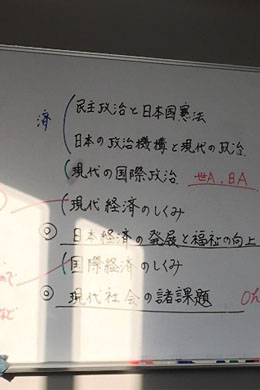 済
民主政治と日本国憲法
日本の政治機構と現代の政治
現代の国際政治 世A、日A
現代経済のしくみ
◎ 日本経済の発展と福祉の向上
国際経済のしくみ
ので
◎ 現代社会の諸課題
など